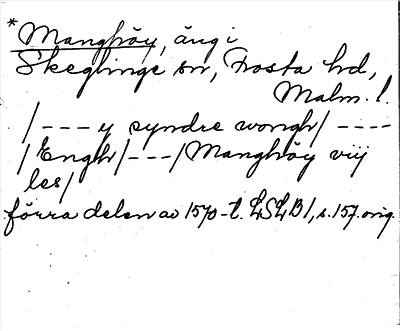 *Manghöy, äng i
Skeglinge sn, Frosta hd,
Malm. l.
/--- y syndre wongh/ ----
/Engh/---/Manghöy viij
les/
förra delen av 1570-t. LSLB1, s. 157. orig.